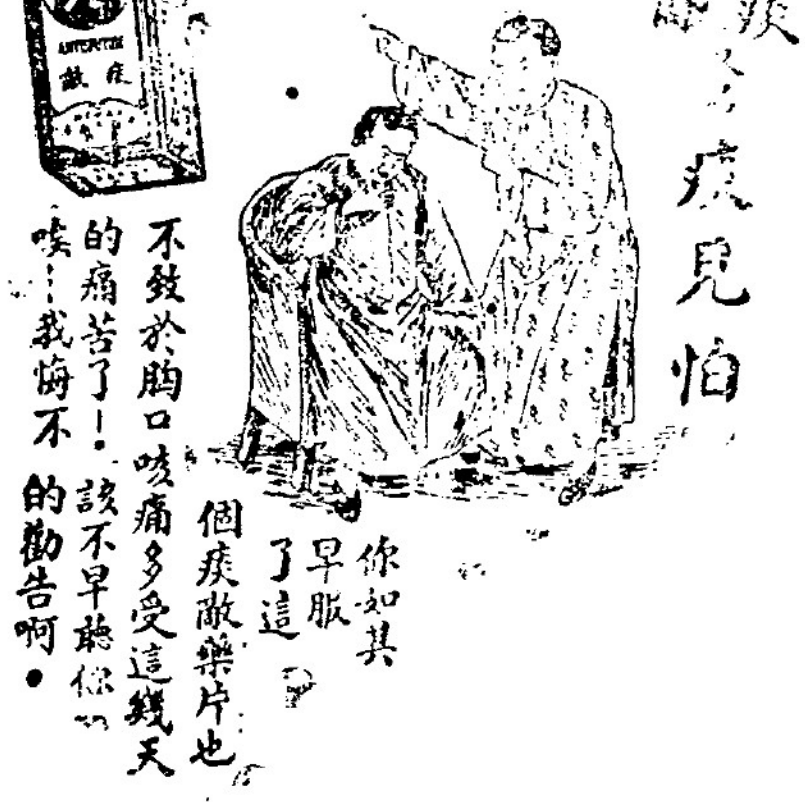 痰
痰見怕
痰敵
你如其
早服
了這
個痰敵藥片也
不致於胸口咳痛多受這幾天
的痛苦了！
唉……我悔不
該不早聽你
的勸告啊。